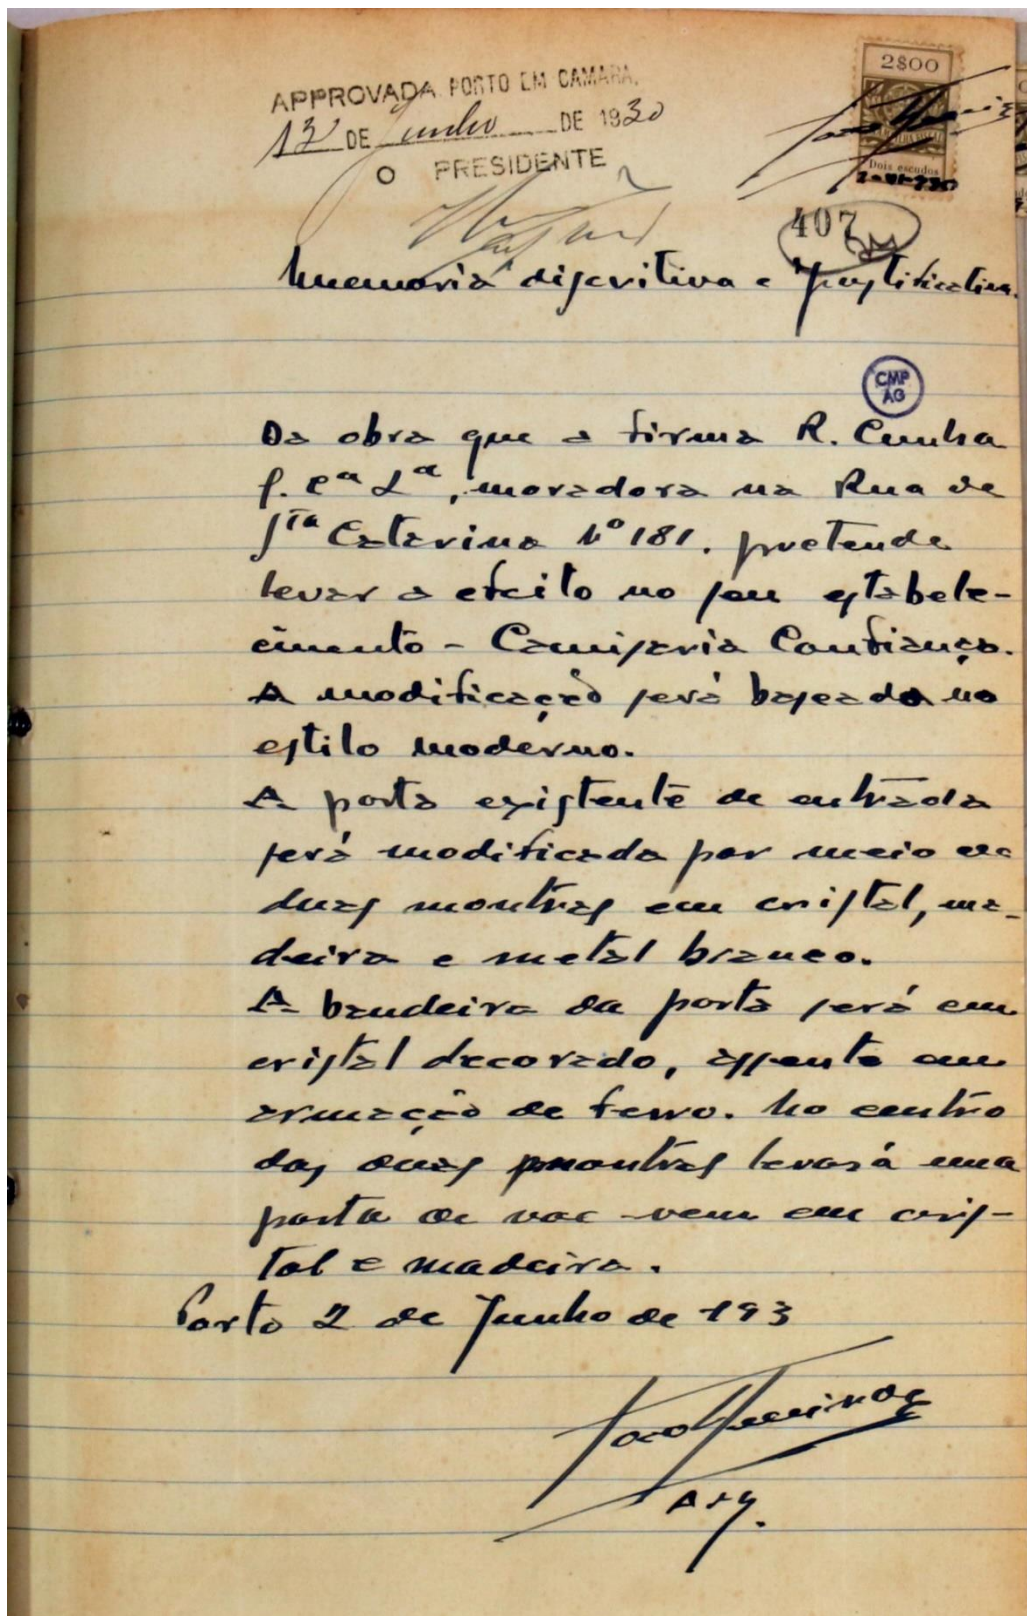 2$00
APPROVADA PORTO EM CAMARA,
13 DE Junho DE 1930
O PRESIDENTE
Dois escudos
2-VI-930
407
Memoria discritiva e justificativa.
CMP
AG
Da obra que a firma R. Cunha
S. Cª Lª, moradora na Rua de
Sta Catarina Nº 181. pretende
levar a efeito no seu estabele-
cimento - Camisaria Confiança.
A modificação será baseada no
estilo moderno.
A porta existente de entrada
será modificada por meio de
duas montras em cristal, ma-
deira e metal branco.
A bandeira da porta será em
cristal decorado, assente em
armação de ferro. No centro
das duas montras levará uma
porta de vae-vem em cris-
tal e madeira.
Porto 2 de Junho de 193
Arq.